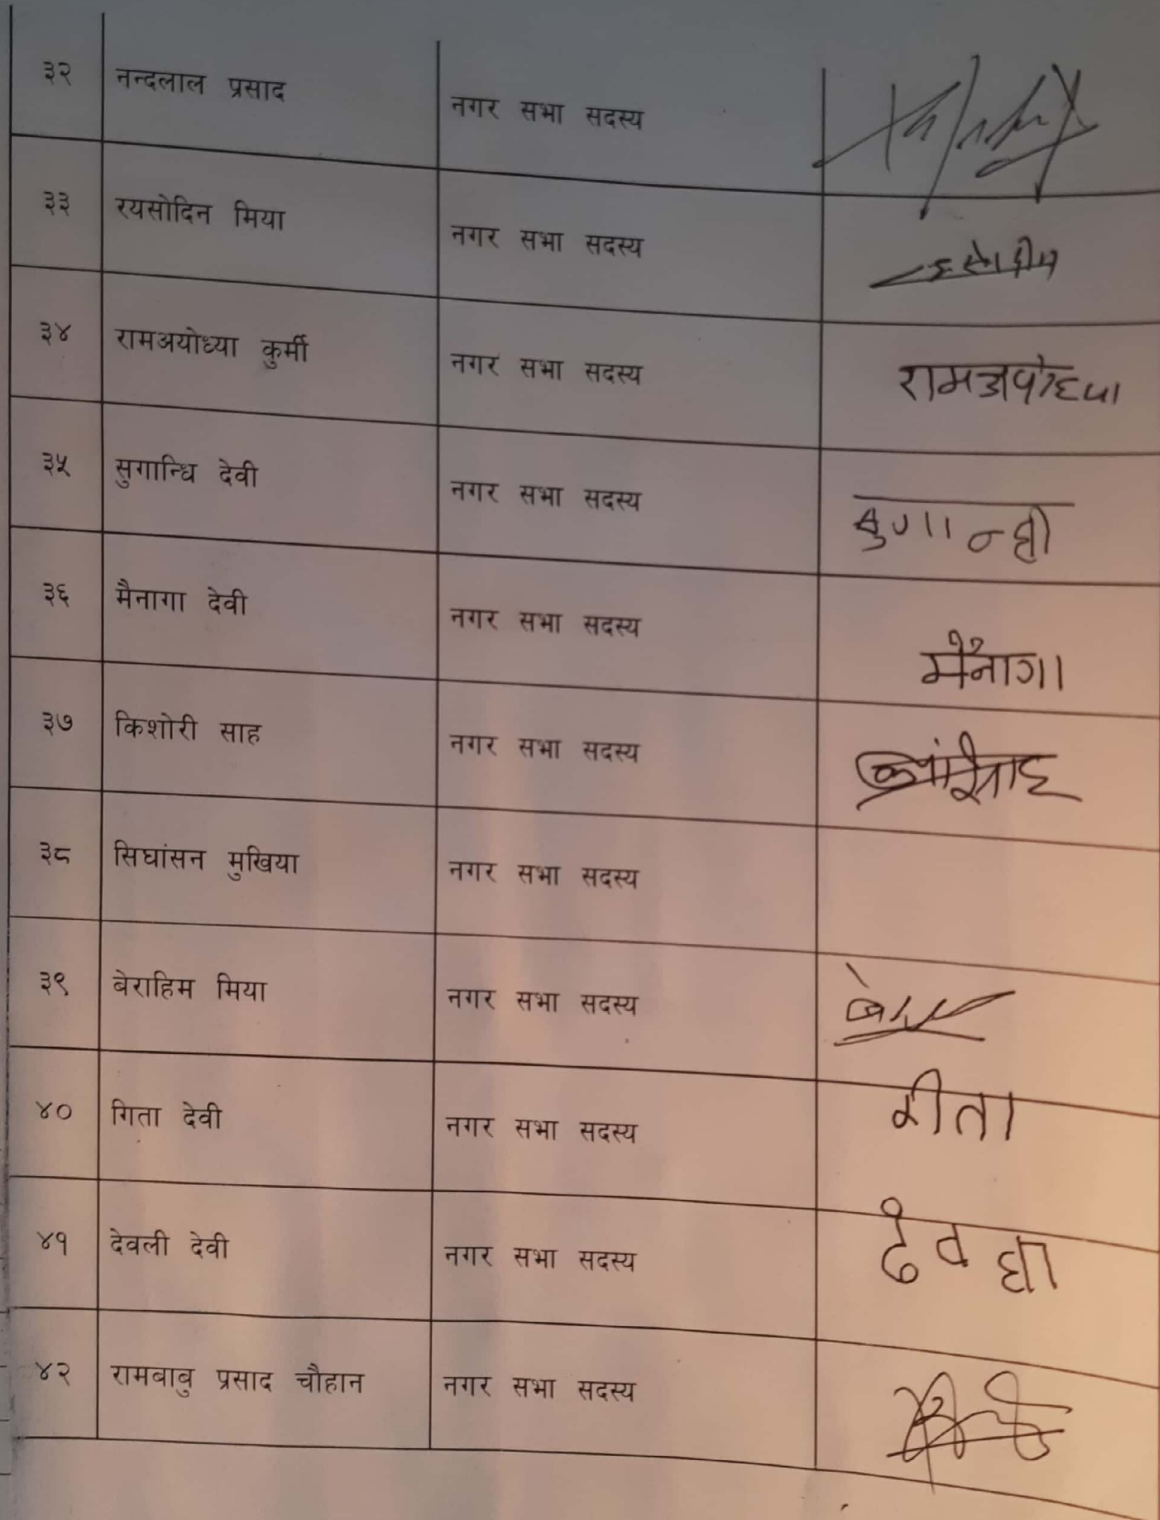 ३२ नन्दलाल प्रसाद नगर सभा सदस्य
३३ रयसोदिन मिया नगर सभा सदस्य
३४ रामअयोध्या कुर्मी नगर सभा सदस्य रामअयोध्या
३५ सुगान्धि देवी नगर सभा सदस्य सुगान्धी
३६ मैनागा देवी नगर सभा सदस्य मैनागा
३७ किशोरी साह नगर सभा सदस्य
३८ सिघांसन मुखिया नगर सभा सदस्य
३९ बेराहिम मिया नगर सभा सदस्य
४० गिता देवी नगर सभा सदस्य गीता
४१ देवली देवी नगर सभा सदस्य
४२ रामबाबु प्रसाद चौहान नगर सभा सदस्य